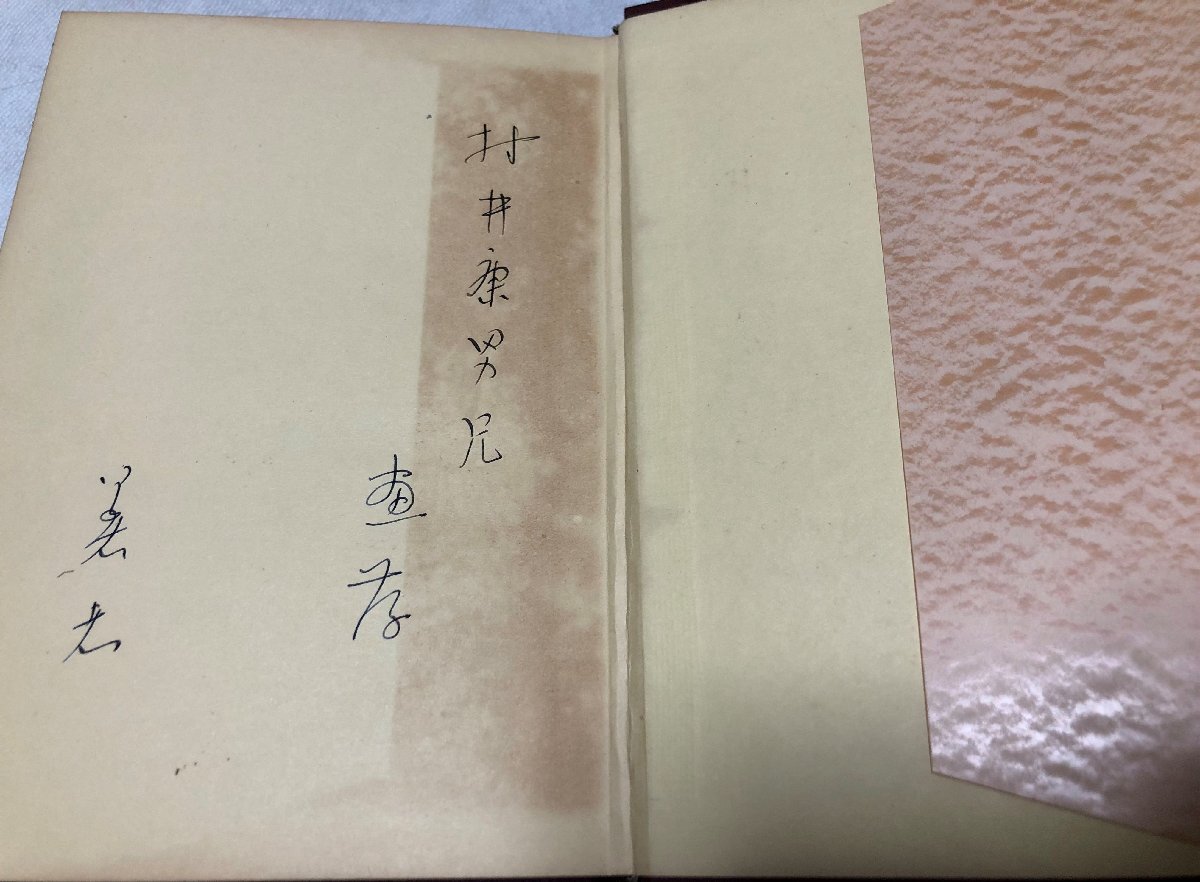 村井康男兄
恵存
著者